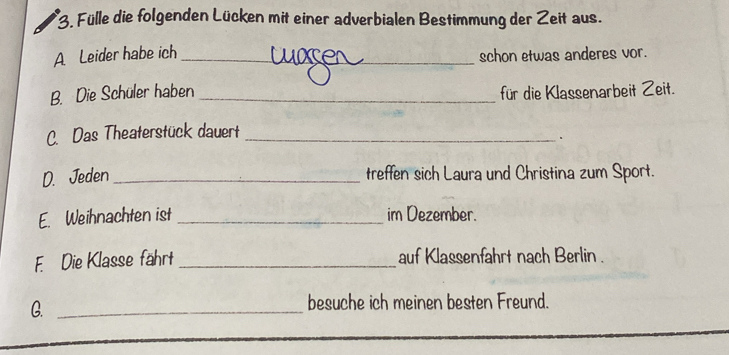 3. Fülle die folgenden Lücken mit einer adverbialen Bestimmung der Zeit aus.
A. Leider habe ich morgen schon etwas anderes vor.
B. Die Schüler haben für die Klassenarbeit Zeit.
C. Das Theaterstück dauert .
D. Jeden treffen sich Laura und Christina zum Sport.
E. Weihnachten ist im Dezember.
F. Die Klasse fährt auf Klassenfahrt nach Berlin .
G. besuche ich meinen besten Freund.